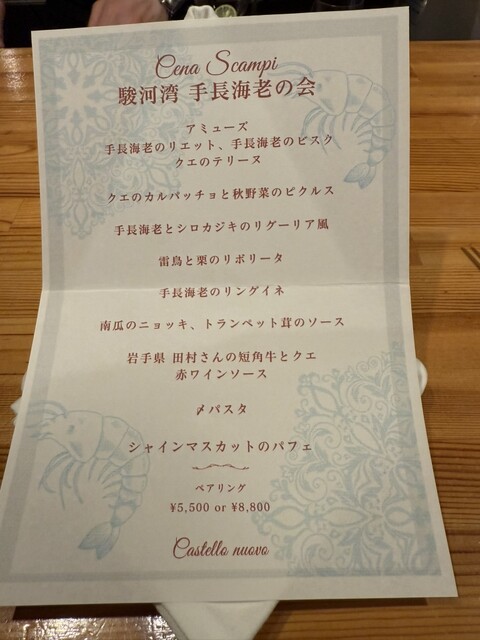 Cena Scampi
駿河湾 手長海老の会
アミューズ
手長海老のリエット、手長海老のビスク
クエのテリーヌ
クエのカルパッチョと秋野菜のピクルス
手長海老とシロカジキのリグーリア風
雷鳥と栗のリボリータ
手長海老のリングイネ
南瓜のニョッキ、トランペット茸のソース
岩手県 田村さんの短角牛とクエ
赤ワインソース
〆パスタ
シャインマスカットのパフェ
ペアリング
¥5,500 or ¥8,800
Castello nuovo